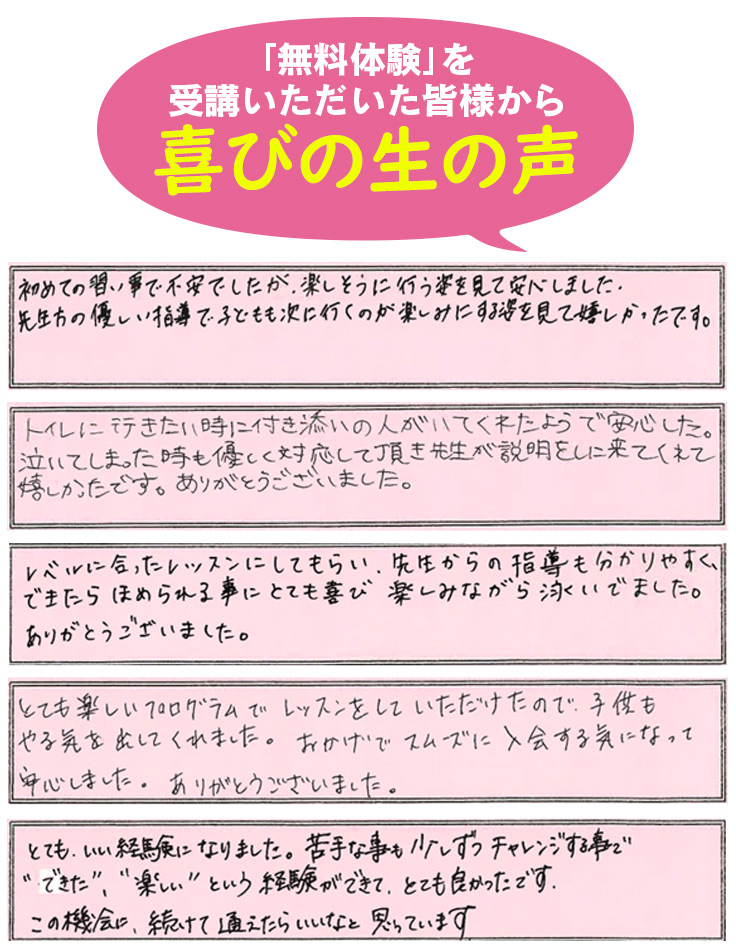 「無料体験」を
受講いただいた皆様から
喜びの生の声
初めての習い事で不安でしたが、楽しそうに行う姿を見て安心しました。
先生方の優しい指導で子どもも次に行くのが楽しみにする姿を見て嬉しかったです。
トイレに行きたい時に付き添いの人がいてくれたようで安心した。
泣いてしまった時も優しく対応して頂き先生が説明をしに来てくれて
嬉しかたです。ありがとうございました。
レベルに合ったレッスンにしてもらい、先生からの指導も分かりやすく、
できたらほめられる事にとても喜び 楽しみながら泳くいでました。
ありがとうございました。
とても楽しいプログラムで レッスンをして いただけたので、子供も
やる気を出してくれました。おかげで スムーズに 入会する気になって
安心しました。ありがとうございました。
とても、いい経験になりました。苦手な事も少しずつチャレンジする事で
"できた"、"楽しい" という 経験ができて、とても良かったです。
この機会に、続けて通えたらいいなと 思っています